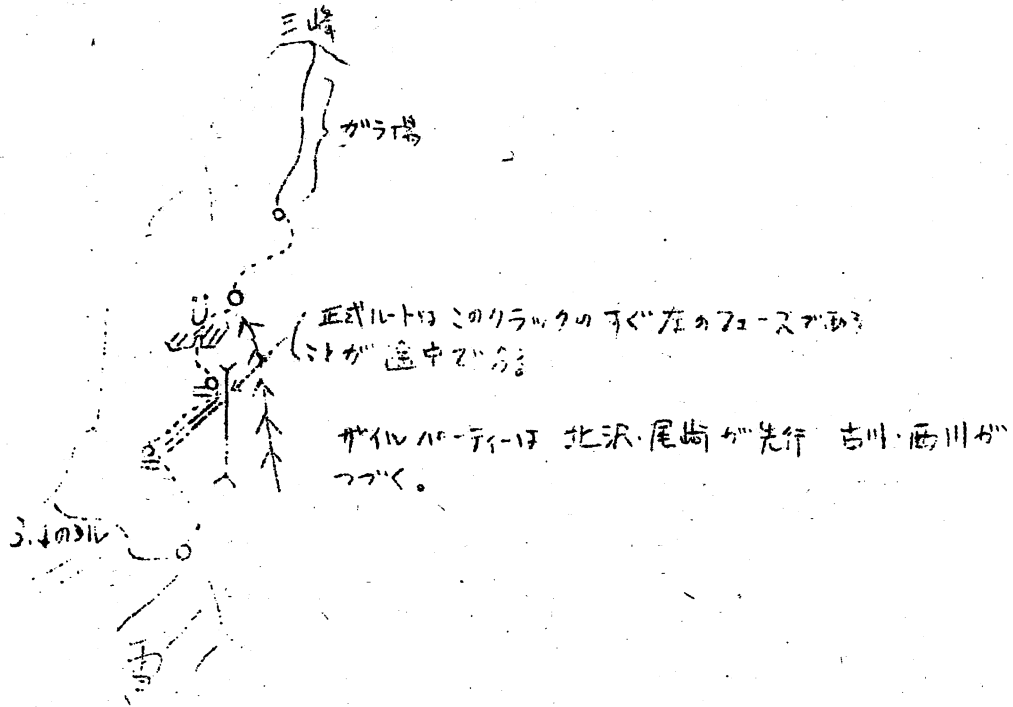 三峰
ガラ場
正式ルートはこのクラックのすぐ左のフェースである
ことが途中で分る
ザイルパーティーは 北沢・尾崎が先行 古川・西川が
つづく。
のコル
雪